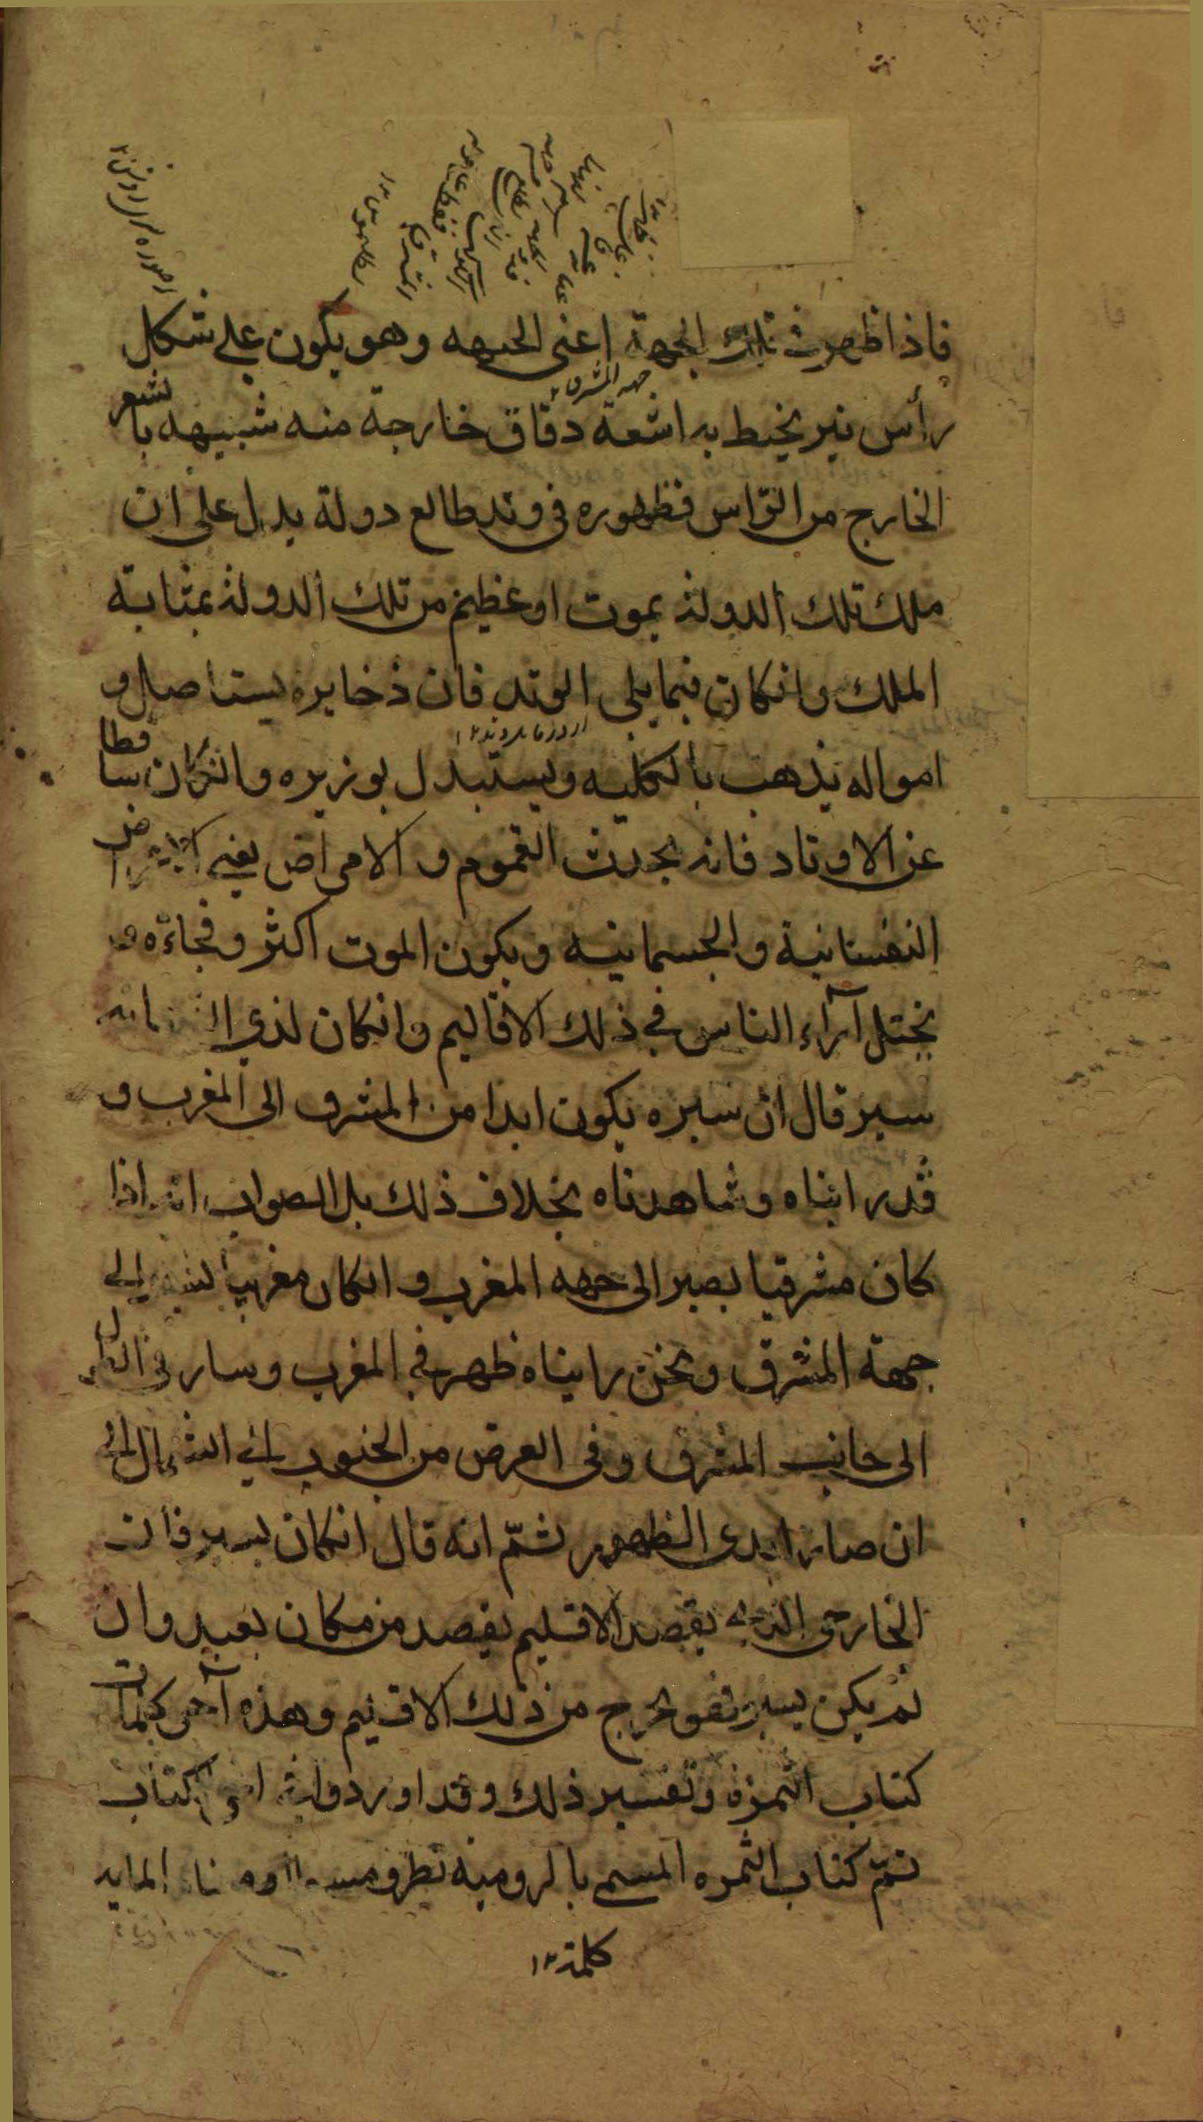 فاذا ظهرت تلك الجهة اعنى الجبهه وهو يكون على شكل
جهه المشرق ١٢
رأس نير يحيط به اشعة دقاق خارجة منه شبيهه بالشعر
الخارج من الراس فظهوره فى وتد طالع دولة يدل على ان
ملك تلك الدولة يموت او عظيم من تلك الدولة بمثابة
الملك وانكان فيما يلى الوتد فان ذخايره يستاصل و
امواله يذهب بالكليه ويستبدل بوزيره وانكان ساقطا
عن الاوتاد فانه يحدث الغموم و الامراض يعنى الامراض
النفسانية والجسمانية ويكون الموت اكثر وفجاءة
يختل آراء الناس فى ذلك الاقاليم وانكان لذى
سير قال ان سيره يكون ابدا من المشرق الى المغرب و
قد رايناه وشاهدناه بخلاف ذلك بل الصواب انه اذا
كان مشرقيا يصير الى جهه المغرب و انكان مغربيا الى
جهة المشرق ونحن رايناه ظهر فى المغرب وسار فى الطول
الى جانب المشرق وفى العرض من الجنوب الى الشمال الى
ان صار ابدى الظهور ثمّ انه قال انكان يسير فان
الخارجى الذى يقصد الاقليم يقصد من مكان بعيد وان
لم يكن يسير فهو يخرج من ذلك الاقليم وهذه آخر كلمات
كتاب الثمرة وتفسير ذلك وقد اورد كتاب
تمّ كتاب الثمره المسمى بالرومية المايه
كلمة ١٢